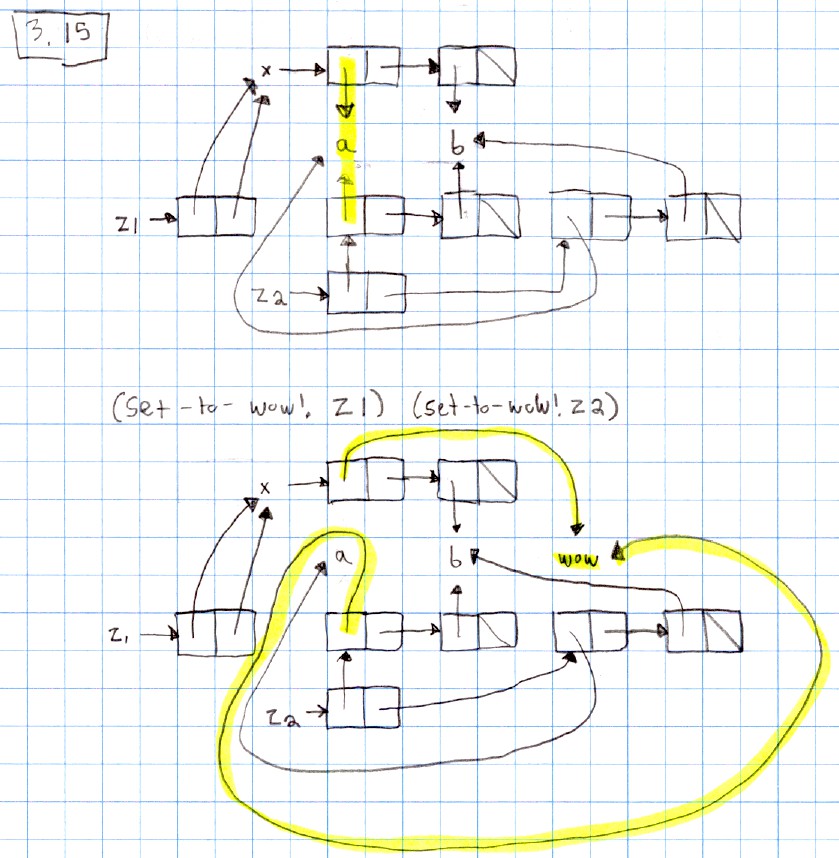 3.15
x
a
b
z1
z2
(set-to-wow! z1) (set-to-wow! z2)
x
a
b
wow
z1
z2